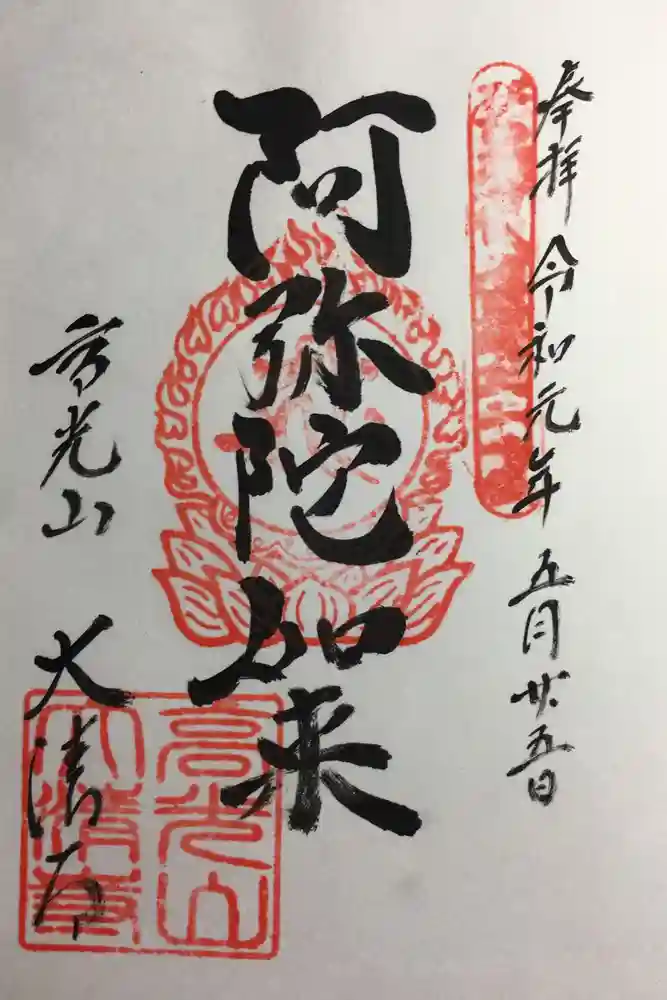 奉拝 令和元年 五月廿五日
阿弥陀如来
高光山 大清寺
高光山
大清章